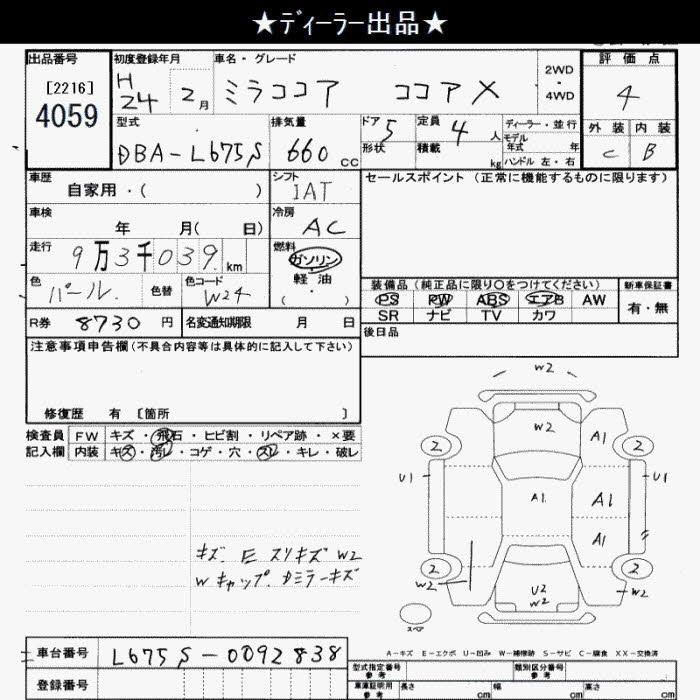 ★ディーラー出品★
出品番号 初度登録年月 車名・グレード 評価点
[2216] H 24 2月 ミラココア ココアX 2WD・4WD 4
4059
型式 排気量 ドア 5 定員 4人 ディーラー・並行 外装 内装
DBA-L675S 660cc 形状 積載 kg モデル年式 年 C B
ハンドル 左・右
車歴 自家用・( ) シフト IAT セールスポイント(正常に機能するものに限ります)
車検 年 月( 日) 冷房 AC
走行 9万3千039km 燃料 ガソリン
軽油
・
( )
色 パール. 色替 色コード W24 装備品(純正品に限り○をつけてください) 新車保証書
PS PW ABS エアB AW 有・無
SR ナビ TV カワ
R券 8730円 名変通知期限 月 日 後日品
注意事項申告欄(不具合内容等は具体的に記入して下さい)
修復歴 有 [箇所 ]
検査員 FW キズ・飛石・ヒビ割・リペア跡・×要
記入欄 内装 キズ・汚レ・コゲ・穴・スレ・キレ・破レ
W2
W2
2 A1 2
U1 A1 A1 U1
A1
2 2
W2 U2 W2
W2
キズ. E スリキズ W2
Wキャップ. ミラーキズ
スペア
A-キズ E-エクボ U-凹み W-補修跡 S-サビ C-腐食 XX-交換済
車台番号 L675S-0092838
型式指定番号 参考 類別区分番号 参考
登録番号 車庫証明用 参考 長さ cm 幅 cm 高さ cm